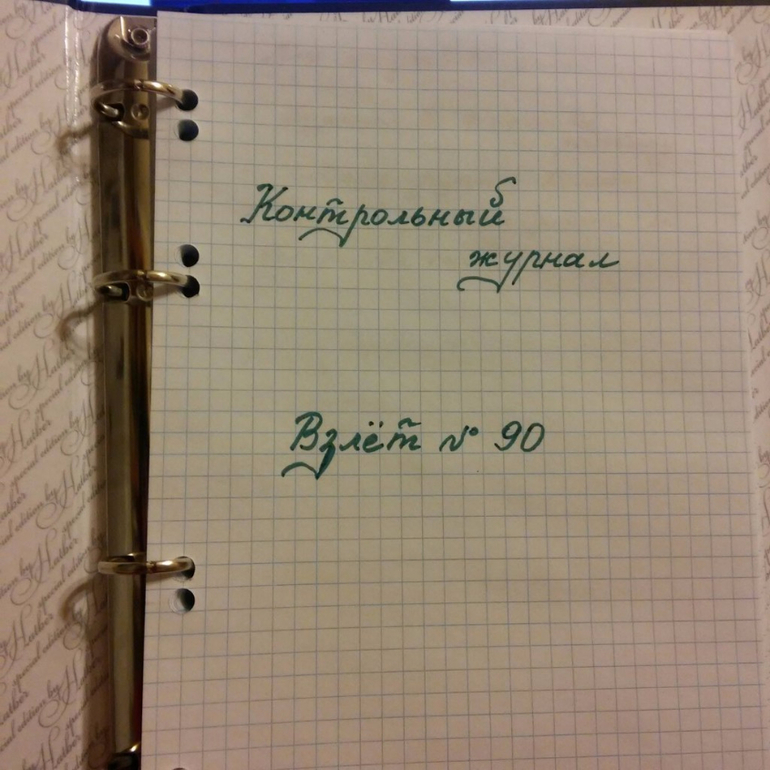 Контрольный
журнал
Взлёт № 90